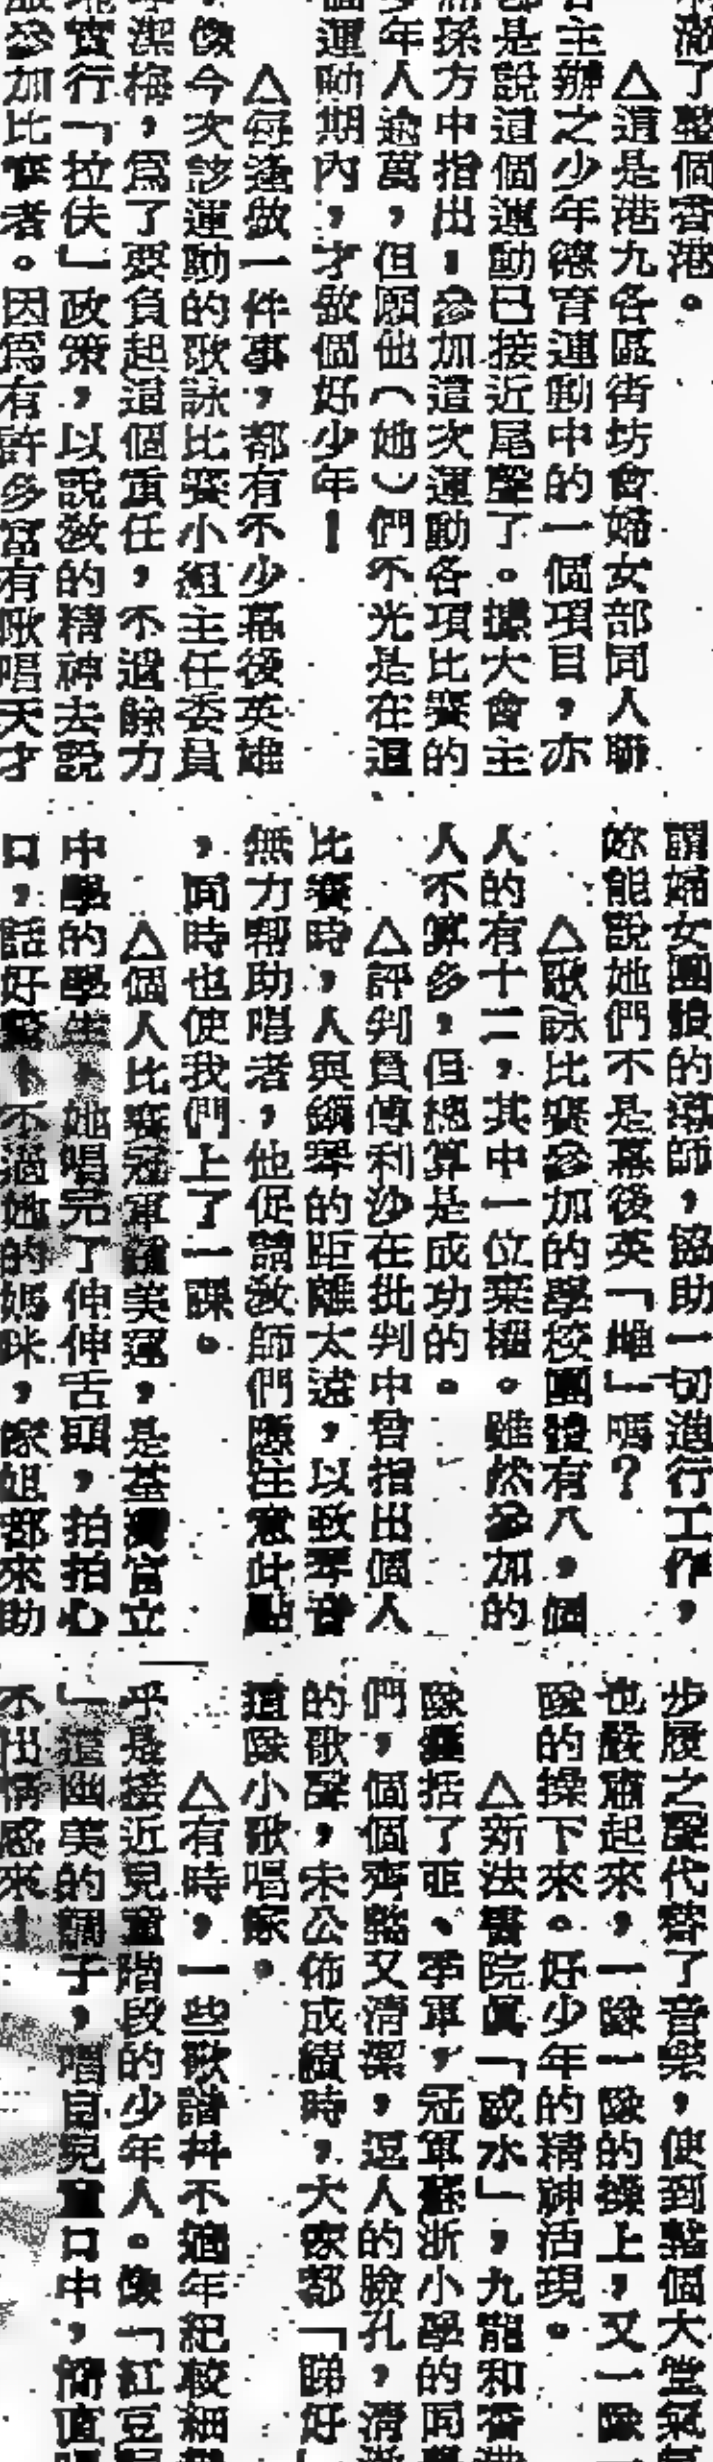 滿了整個香港。
△這是港九各區街坊會婦女部同人聯
主辦之少年德育運動中的一個項目，亦
是說這個運動已接近尾聲了。據大會主
孫方中指出：參加這次運動各項比賽的
年人逾萬，但願他（她）們不光是在這
運動期內，才做個好少年！
△每逢做一件事，都有不少幕後英雄
像今次該運動的歌詠比賽小組主任委員
潔梅，爲了要負起這個重任，不遺餘力
實行「拉伕」政策，以說教的精神去說
參加比賽者。因爲有許多富有歌唱天才
謂婦女團體的導師，協助一切進行工作，
你能說她們不是幕後英「雌」嗎？
△歌詠比賽參加的學校團體有八，個
人的有十二，其中一位棄權。雖然參加的
人不算多，但總算是成功的。
△評判員傅利沙在批判中曾指出個人
比賽時，人與鋼琴的距離太遠，以致琴音
無力幫助唱者，他促請教師們應注意此點
，同時也使我們上了一課。
△個人比賽冠軍 美運，是荃灣官立
中學的學生，她唱完了伸伸舌頭，拍拍心
口，話好驚，不過她的媽咪，家姐都來助
步履之聲代替了音樂，使到整個大堂氣
也嚴肅起來，一隊一隊的操上，又一隊
隊的操下來。好少年的精神活現。
△新法書院眞「威水」，九龍和香港
隊囊括了亞、季軍，冠軍蘇浙小學的同學
們，個個齊整又清潔，逗人的臉孔，清
的歌聲，未公佈成績時，大家都「睇好」
這隊小歌唱家。
△有時，一些歌譜幷不適年紀較細
乎是接近兒童階段的少年人。像「紅豆
」這幽美的調子，唱自兒童口中，簡直
不出情感來！